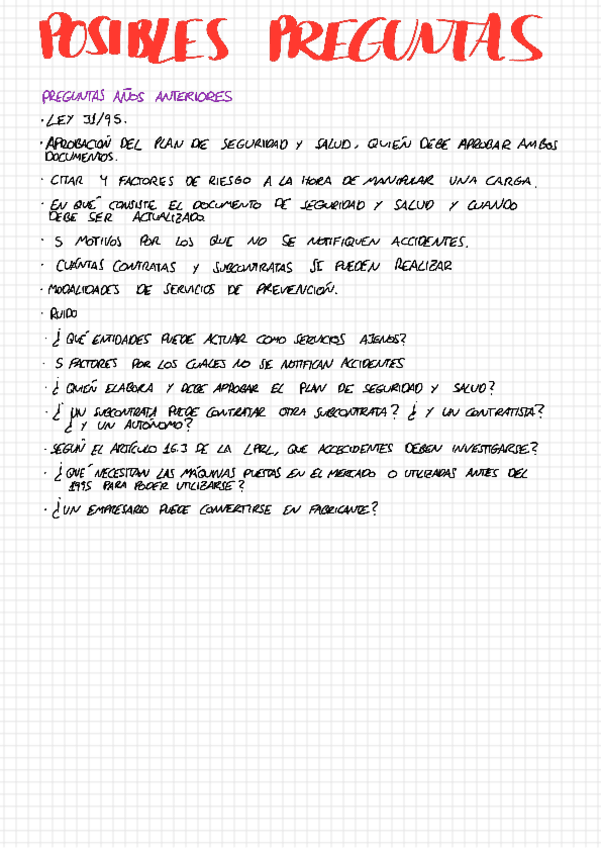 POSIBLES PREGUNTAS
PREGUNTAS AÑOS ANTERIORES
· LEY 31/95.
· APROBACIÓN DEL PLAN DE SEGURIDAD Y SALUD, QUIÉN DEBE APROBAR AMBOS
DOCUMENTOS.
· CITAR 4 FACTORES DE RIESGO A LA HORA DE MANIPULAR UNA CARGA.
· EN QUÉ CONSISTE EL DOCUMENTO DE SEGURIDAD Y SALUD Y CUANDO
DEBE SER ACTUALIZADO.
· 5 MOTIVOS POR LOS QUE NO SE NOTIFIQUEN ACCIDENTES.
· CUÁNTAS CONTRATAS Y SUBCONTRATAS SE PUEDEN REALIZAR
· MODALIDADES DE SERVICIOS DE PREVENCIÓN.
· RUIDO
· ¿QUÉ ENTIDADES PUEDE ACTUAR COMO SERVICIOS AJENOS?
· 5 FACTORES POR LOS CUALES NO SE NOTIFICAN ACCIDENTES
· ¿QUIÉN ELABORA Y DEBE APROBAR EL PLAN DE SEGURIDAD Y SALUD?
· ¿UN SUBCONTRATA PUEDE CONTRATAR OTRA SUBCONTRATA? ¿Y UN CONTRATISTA?
¿Y UN AUTÓNOMO?
· SEGÚN EL ARTÍCULO 16.3 DE LA LPRL, QUE ACCECIDENTES DEBEN INVESTIGARSE?
· ¿QUÉ NECESITAN LAS MÁQUINAS PUESTAS EN EL MERCADO O UTILIZADAS ANTES DEL
1995 PARA PODER UTILIZARSE?
· ¿UN EMPRESARIO PUEDE CONVERTIRSE EN FABRICANTE?